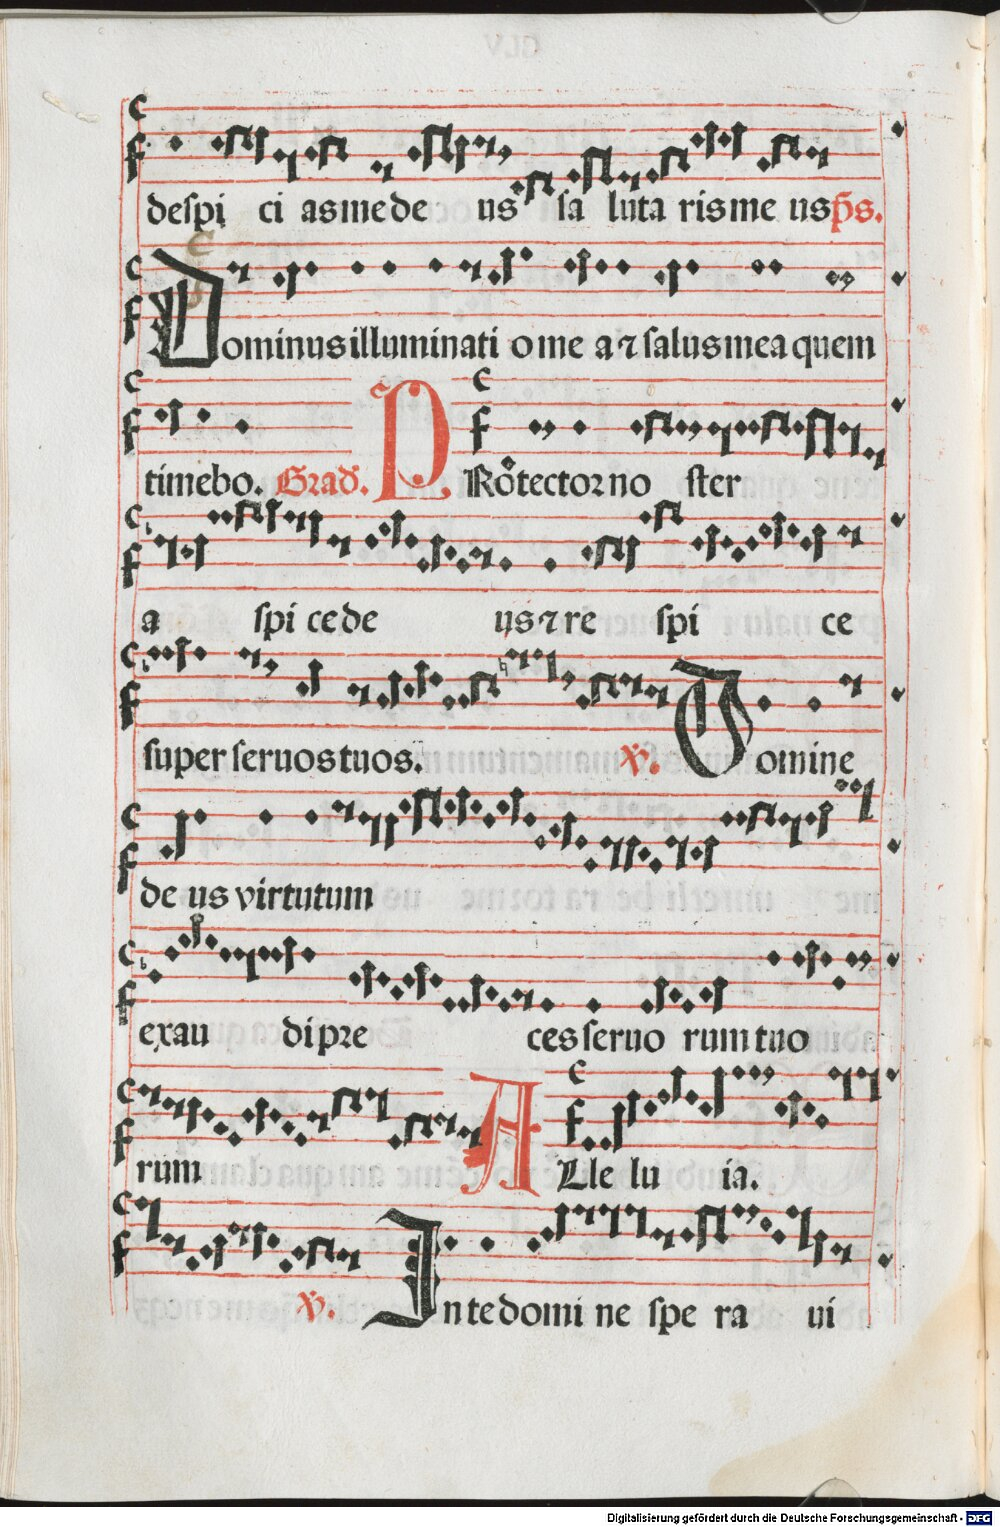 despi ci as me de us sa luta ris me us p̄s.
Dominus illuminati o me a ⁊ salus mea quem
timebo. Grad̄. PRotector no ster
a spi ce de us ⁊ re spi ce
super seruos tuos. V̄. Domine
de us virtutum
exau di pre ces seruo rum tuo
rum ALle lu ia.
V̄. In te domi ne spe ra ui
Digitalisierung gefördert durch die Deutsche Forschungsgemeinschaft - DFG